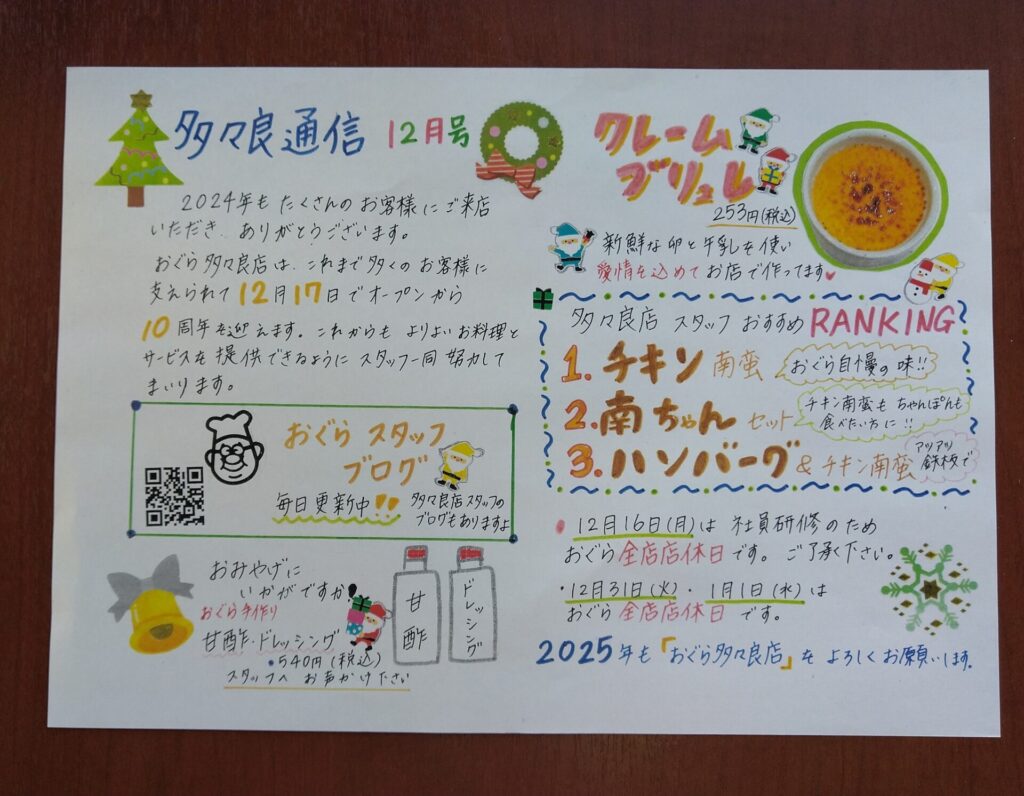 多々良通信 12月号
2024年も たくさんの お客様に ご来店
いただき、ありがとうございます。
おぐら多々良店は、これまで多くの お客様に
支えられて 12月17日でオープンから
10周年を迎えます。これからも よりよい お料理と
サービスを 提供できるように スタッフ一同 努力して
まいります。
おぐら スタッフ
ブログ
毎日更新中!!
多々良店スタッフの
ブログもありますよ
おみやげに
いかがですか!
おぐら手作り
甘酢・ドレッシング
・540円(税込)
スタッフへ お声かけ下さい
甘酢
ドレッシング
クレーム
ブリュレ
253円(税込)
新鮮な卵と牛乳を使い
愛情を込めて お店で作ってます♥
多々良店 スタッフ おすすめ RANKING
1. チキン南蛮 おぐら自慢の味!!
2. 南ちゃん セット チキン南蛮も ちゃんぽんも
食べたい方に!!
3. ハンバーグ & チキン南蛮 アツアツ
鉄板で
・12月16日(月)は 社員研修のため
おぐら 全店店休日です。ご了承下さい。
・12月31日(火)・1月1日(水)は
おぐら 全店店休日 です。
2025年も「おぐら多々良店」を よろしくお願いします。